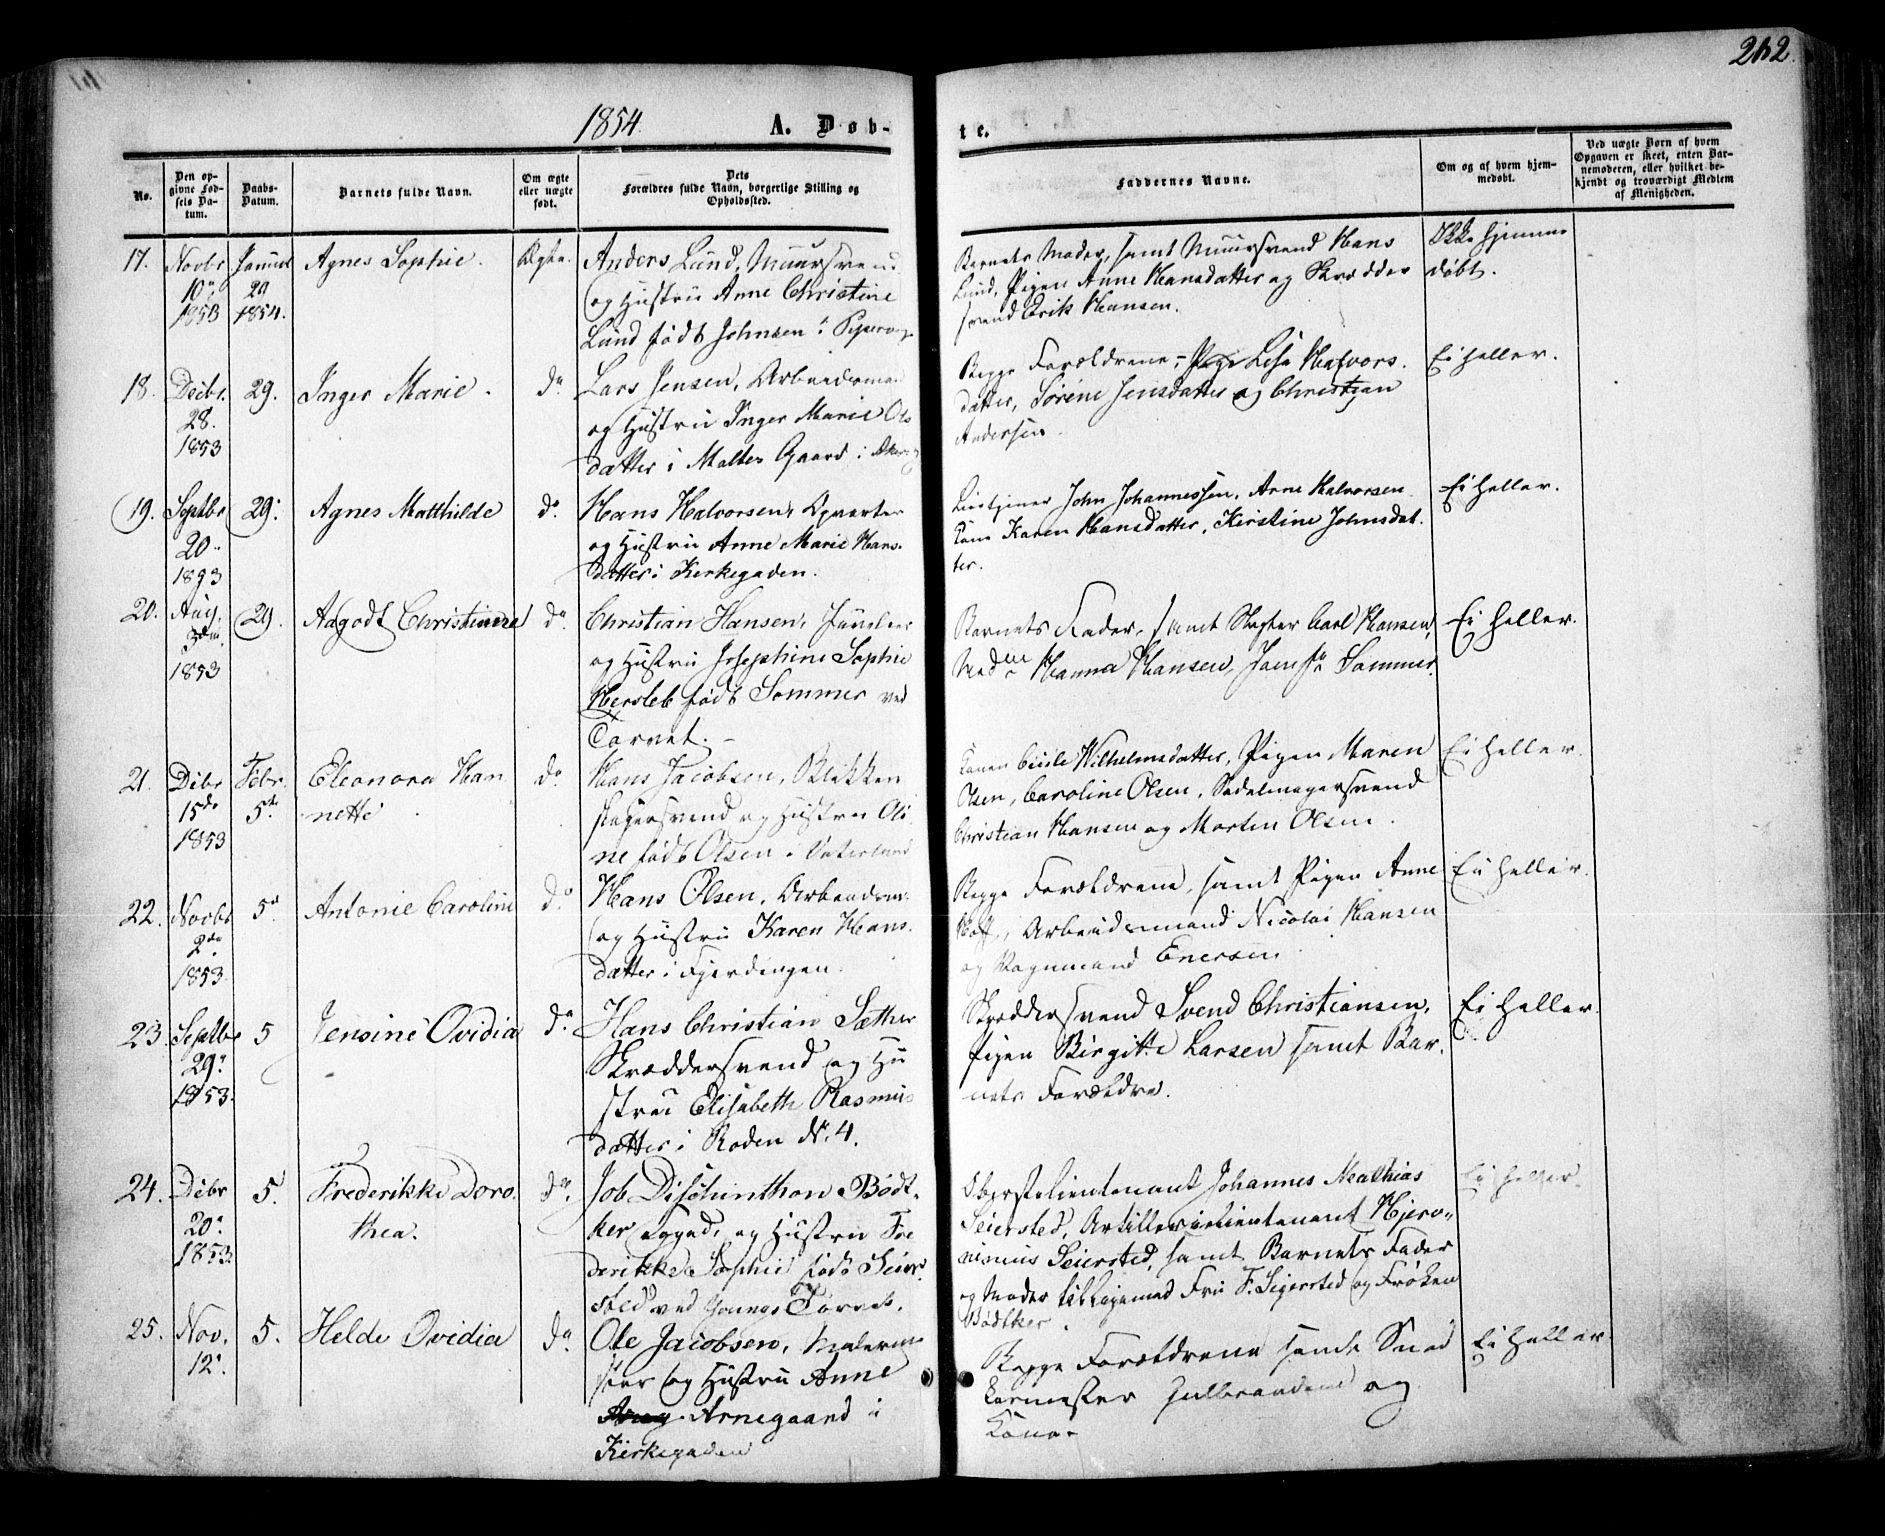 212.
1854. A. Døb-
te.
No.
Den op-
givne Fød-
sels Da-
tum.
Daabs-
Datum.
Barnets fulde Navn.
Om ægte
eller uægte
født.
Dets
Forældres fulde Navn, borgerlige Stilling og
Opholdssted.
Faddernes Navne.
Om og af hvem hjem-
medøbt.
Ved uægte Børn af hvem
Opgaven er skeet, enten Bar-
nemoderen, eller hvilket be-
kjendt og troværdigt Medlem
af Menigheden.
17.
Novbr
10
1853
Januar
29
1854.
Agnes Sophie.
Ægte.
Anders Lund, Muursvend
og Hustru Anne Christine
Lund født Johnsen i
Barnets Moder, samt Muursvend Hans
Lund, Pigen Anne Hansdatter og Skrædder
svend Erik Hansen.
Ikke hjemme
døbt.
18.
Decbr.
28.
1853
29.
Inger Marie.
do
Lars Jensen, Arbeidsmand
og Hustru Inger Marie Ols
datter i Maltes Gaard i
Begge Forældrene, Pige Lisa Halvors.
datter, Sørene Jensdatter og Christian
Andersen
Ei heller.
19.
Septbr
20
1893
29.
Agnes Matthilde
do
Hans Halvorsen,
og Hustru Anne Marie Hans.
datter i Kirkegaden.
John Johannessen, Arne Halvorsen
Kone Karen Hansdatter, Kirstine Johnsdat.
ter.
Ei heller.
20.
Aug.
1853
29.
Aagodt Christiane
do
Christian Hansen,
og Hustru Josephine Sophie
Hersleb født Sommer ved
Torvet.
Barnets Fader, samt Slagter Carl Hansen,
Hanna Hansen, Sommer.
Ei heller.
21.
Debr
15de
1853
Febr.
5te
Eleonora Han
nette
do
Hans Jacobsen, Blikken
slagersvend og Hustru Oli
ne født Olsen i Vaterland
Konen Cicile Wilhelmsdatter, Pigen Maren
Olsen, Caroline Olsen, Sadelmagersvend
Christian Hansen og Morten Olsen.
Ei heller.
22.
Novbr
2de
1853.
5
Antonie Caroline
do
Hans Olsen, Arbeidsm.
og Hustru Karen Hans.
datter i Fjerdingen.
Begge Forældrene, samt Pigen Anne
Hoff, Arbeidsmand Nicolai Hansen
og Vognmand Enersen
Ei heller.
23.
Septbr
29
1853.
5
Jensine Ovidia
do
Hans Christian Sæther
Skræddersvend og Hu
stru Elisabeth Rasmus
datter i Roden No. 4.
Skræddersvend Svend Christiansen,
Pigen Birgitte Larsen samt Bar.
nets Forældre.
Ei heller.
24.
Debr
20
1853.
5.
Frederikke Doro.
thea.
do.
Job Dischinthon Bødt.
ker, og Hustru Fre
derikke Sophie født Seier.
sted ved Youngs Torvet.
Oberstlieutenant Johannes Mathias
Seiersted, Artillerielieutenant Hjero
nimus Seiersted, samt Barnets Fader
og Moder tilligemed Fru F. Sejersted og Frøken
Bødtker.
Ei heller.
25.
Nov.
12
5.
Helde Ovidia
do.
Ole Jacobsen, Malerme
ster og Hustru Anne
Arnegaard i
Kirkegaden
Begge Forældrene samt Sned
kermester Gulbrandsen og
Kone
Ei heller